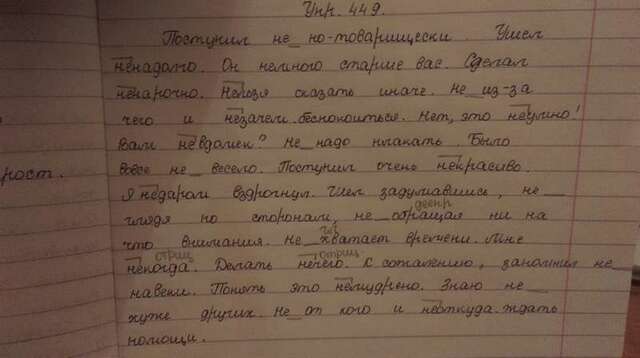 Упр. 449.
Поступил не_по-товарищески. Ушел
ненадолго. Он немного старше вас. Сделал
ненарочно. Нельзя сказать иначе. Не_из-за
чего и незачем беспокоиться. Нет, это неумно!
Вам невдомек? Не_надо плакать. Было
вовсе не_весело. Поступил очень некрасиво.
рост.
Я недаром вздрогнул. Шел задумавшись, не_
глядя по сторонам, не_обращая ни на
деепр
что внимания. Не_хватает времени. Мне
гл
некогда. Делать нечего. К сожалению, запомнил не_
отриц отриц
навек. Понять это немудрено. Знаю не_
хуже других. Не_от кого и неоткуда ждать
помощи.